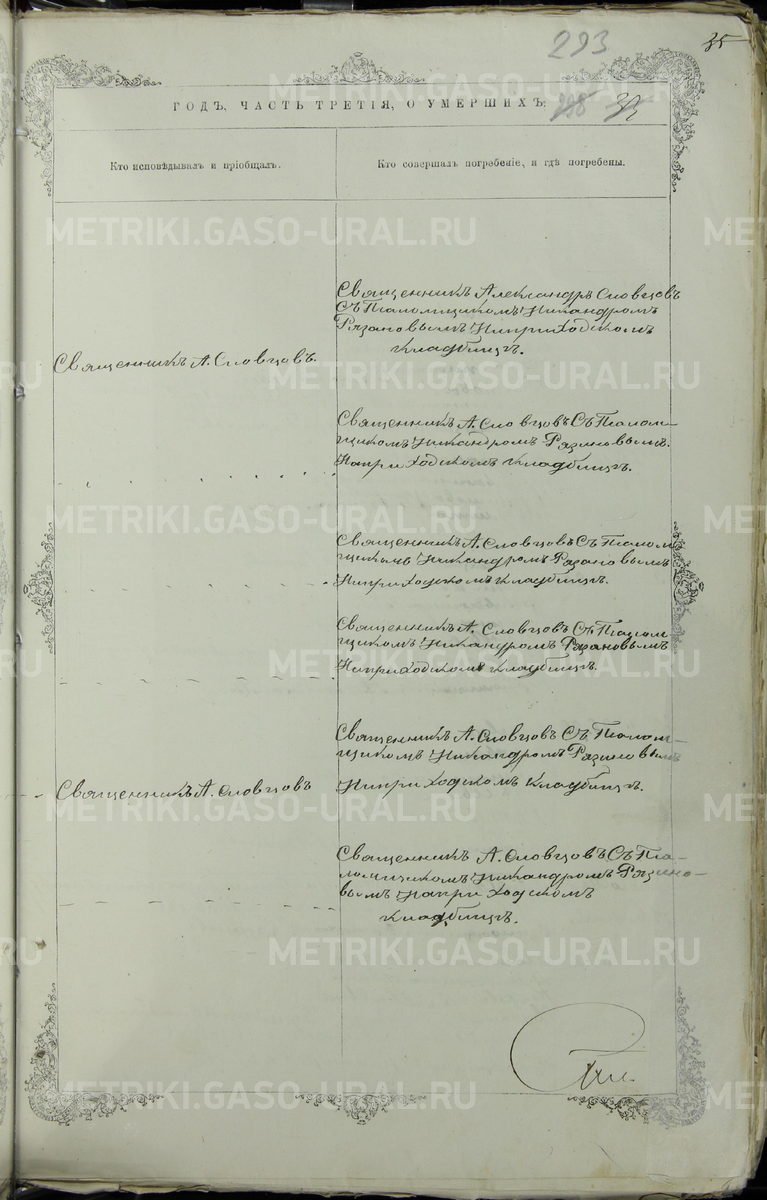 293
35
ГОДЪ, ЧАСТЬ ТРЕТІЯ, О УМЕРШИХЪ:
Кто исповѣдывалъ и пріобщалъ.
Кто совершалъ погребеніе, и гдѣ погребены.
Священникъ Александръ Словцовъ
съ Псаломщикомъ Никандромъ
Рязановымъ на приходскомъ
кладбищѣ.
Священникъ А. Словцовъ.
Священникъ А. Словцовъ съ Псалом-
щикомъ Никандромъ Рязановымъ
на приходскомъ кладбищѣ.
Священникъ А. Словцовъ съ Псалом
щикомъ Никандромъ Рязановымъ
на приходскомъ кладбищѣ.
Священникъ А. Словцовъ съ Псалом
щикомъ Никандромъ Рязановымъ
на приходскомъ кладбищѣ.
Священникъ А. Словцовъ съ Псалом-
щикомъ Никандромъ Рязановымъ
на приходскомъ кладбищѣ.
Священникъ А. Словцовъ
Священникъ А. Словцовъ съ Пса-
ломщикомъ Никандромъ Рязано-
вымъ на приходскомъ
кладбищѣ.
METRIKI.GASO-URAL.RU